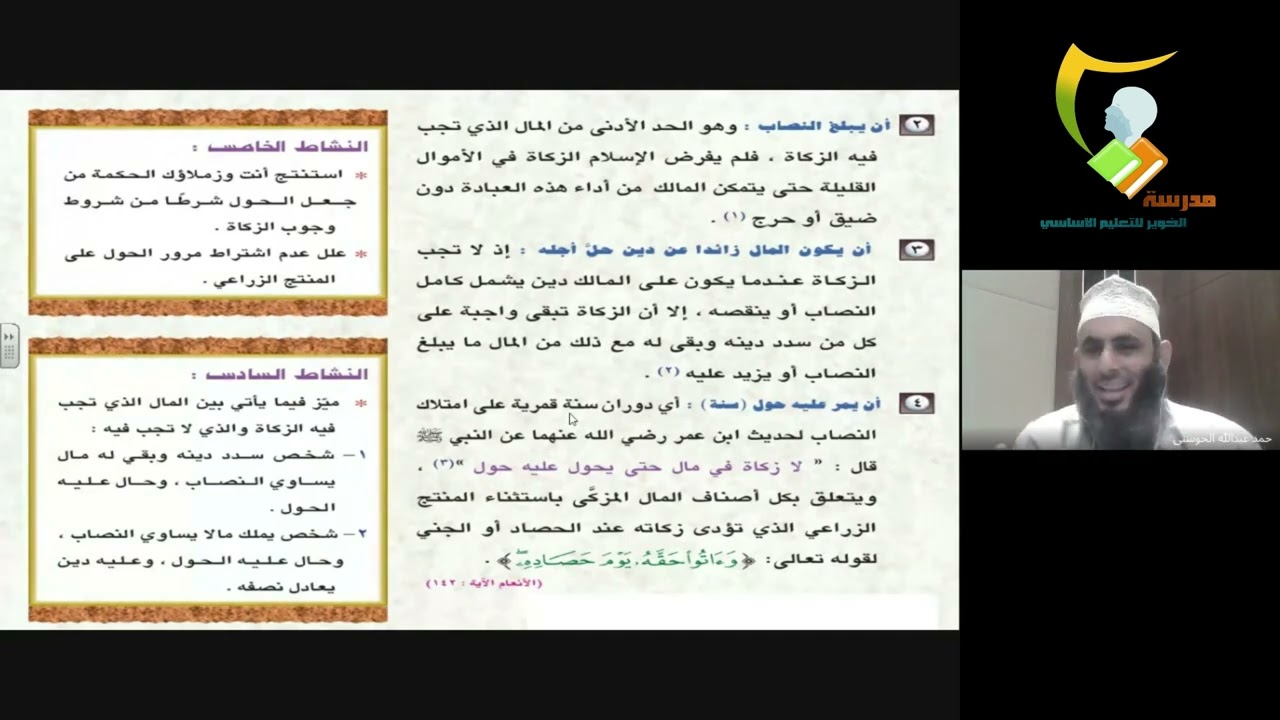 ٢ أن يبلغ النصاب : وهو الحد الأدنى من المال الذي تجب
فيه الزكاة ، فلم يفرض الإسلام الزكاة في الأموال
القليلة حتى يتمكن المالك من أداء هذه العبادة دون
ضيق أو حرج (١) .
٣ أن يكون المال زائدا عن دين حلَّ أجله : إذ لا تجب
الزكاة عندما يكون على المالك دين يشمل كامل
النصاب أو ينقصه ، إلا أن الزكاة تبقى واجبة على
كل من سدد دينه وبقى له مع ذلك من المال ما يبلغ
النصاب أو يزيد عليه (٢) .
٤ أن يمر عليه حول (سنة) : أي دوران سنة قمرية على امتلاك
النصاب لحديث ابن عمر رضي الله عنهما عن النبي ﷺ
قال : « لا زكاة في مال حتى يحول عليه حول »(٣) ،
ويتعلق بكل أصناف المال المزكَّى باستثناء المنتج
الزراعي الذي تؤدى زكاته عند الحصاد أو الجني
لقوله تعالى: ﴿وَءَاتُوا۟ حَقَّهُۥ يَوْمَ حَصَادِهِۦۖ﴾ .
(الأنعام الآية : ١٤٢)
النشاط الخامس :
* استنتج أنت وزملاؤك الحكمة من
جعل الحول شرطًا من شروط
وجوب الزكاة .
* علل عدم اشتراط مرور الحول على
المنتج الزراعي .
النشاط السادس :
* ميّز فيما يأتي بين المال الذي تجب
فيه الزكاة والذي لا تجب فيه :
١- شخص سدد دينه وبقي له مال
يساوي النصاب ، وحال عليه
الحول .
٢- شخص يملك مالا يساوي النصاب ،
وحال عليه الحول ، وعليه دين
يعادل نصفه .
مدرسة
الخوير للتعليم الأساسي
حمد عبدالله الحوسني